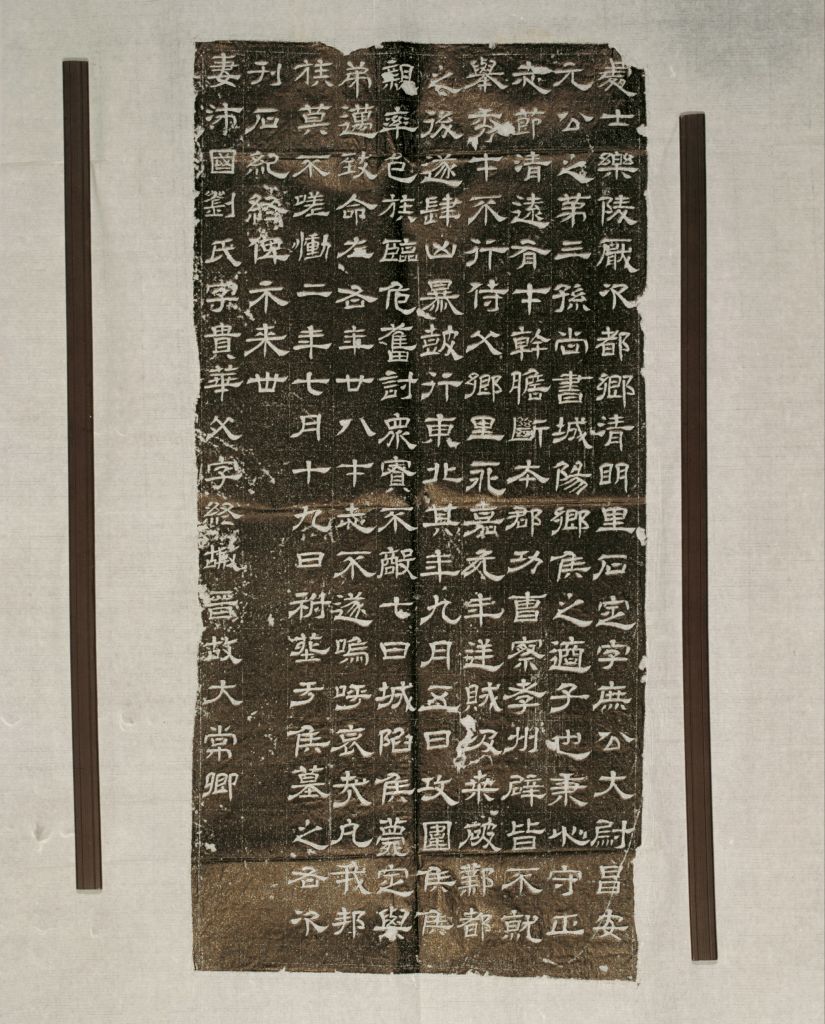 處士樂陵厭次都鄉清明里石定字庶公大尉昌安
元公之第三孫尚書城陽鄉侯之適子也秉心守正
志節清遠有才幹膽斷本郡功曹察孝州辟皆不就
舉秀才不行侍父鄉里永嘉元年逆賊汲桑破鄴都
之後遂肆凶暴鼓行東北其年九月五日攻圍侯侯
親率邑族臨危奮討眾寡不敵七日城陷侯薨定與
弟邁致命左右年廿八才志不遂嗚呼哀哉凡我邦
族莫不嗟慟二年七月十九日祔葬于侯墓之右次
刊石紀終俾示來世
妻沛國劉氏字貴華父字終嘏晉故大常卿